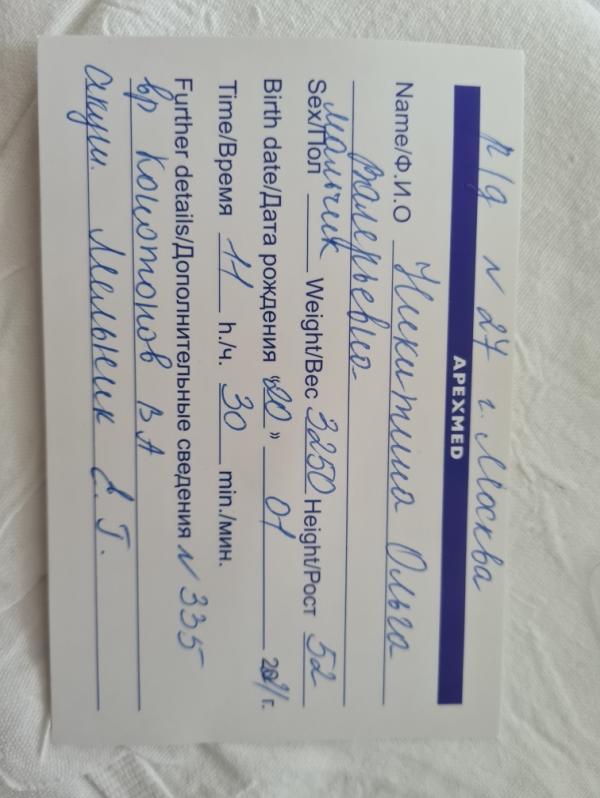 р/д N 27 г. Москва
APEXMED
Name/Ф.И.О Никитина Ольга
Валерьевна
Sex/Пол мальчик Weight/Вес 3250 Height/Рост 52
Birth date/Дата рождения "20" 01 2021 г.
Time/Время 11 h./ч. 30 min./мин.
Further details/Дополнительные сведения N 335
вр Конотопов ВА
акуш. Мельник Л.Г.